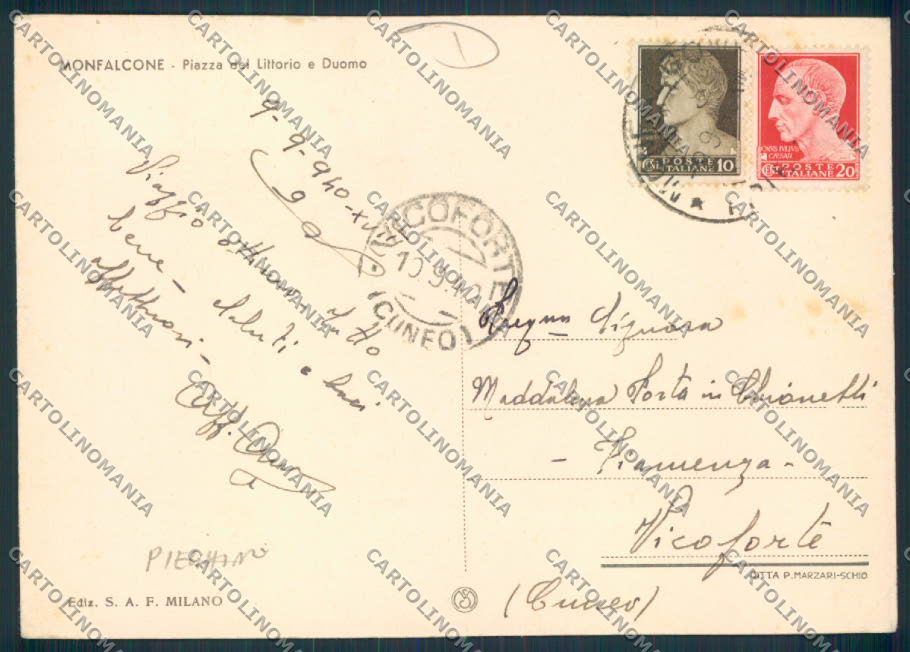 MONFALCONE - Piazza del Littorio e Duomo
9-9-940-XVIII
Viaggio ottimo, tutto
bene - Saluti e baci
affettuosi -
Aff.
PIEGHINO
Ediz. S. A. F. MILANO
POSTE
ITALIANE 10
CAIVS IVLIVS
CAESAR
POSTE
ITALIANE 20
VICOFORTE
10.9.40
(CUNEO)
Signora
Maddalena Porta in Chionetti
- Fiamenga -
Vicoforte
DITTA P. MARZARI-SCHIO
(Cuneo)
CARTOLINOMANIA